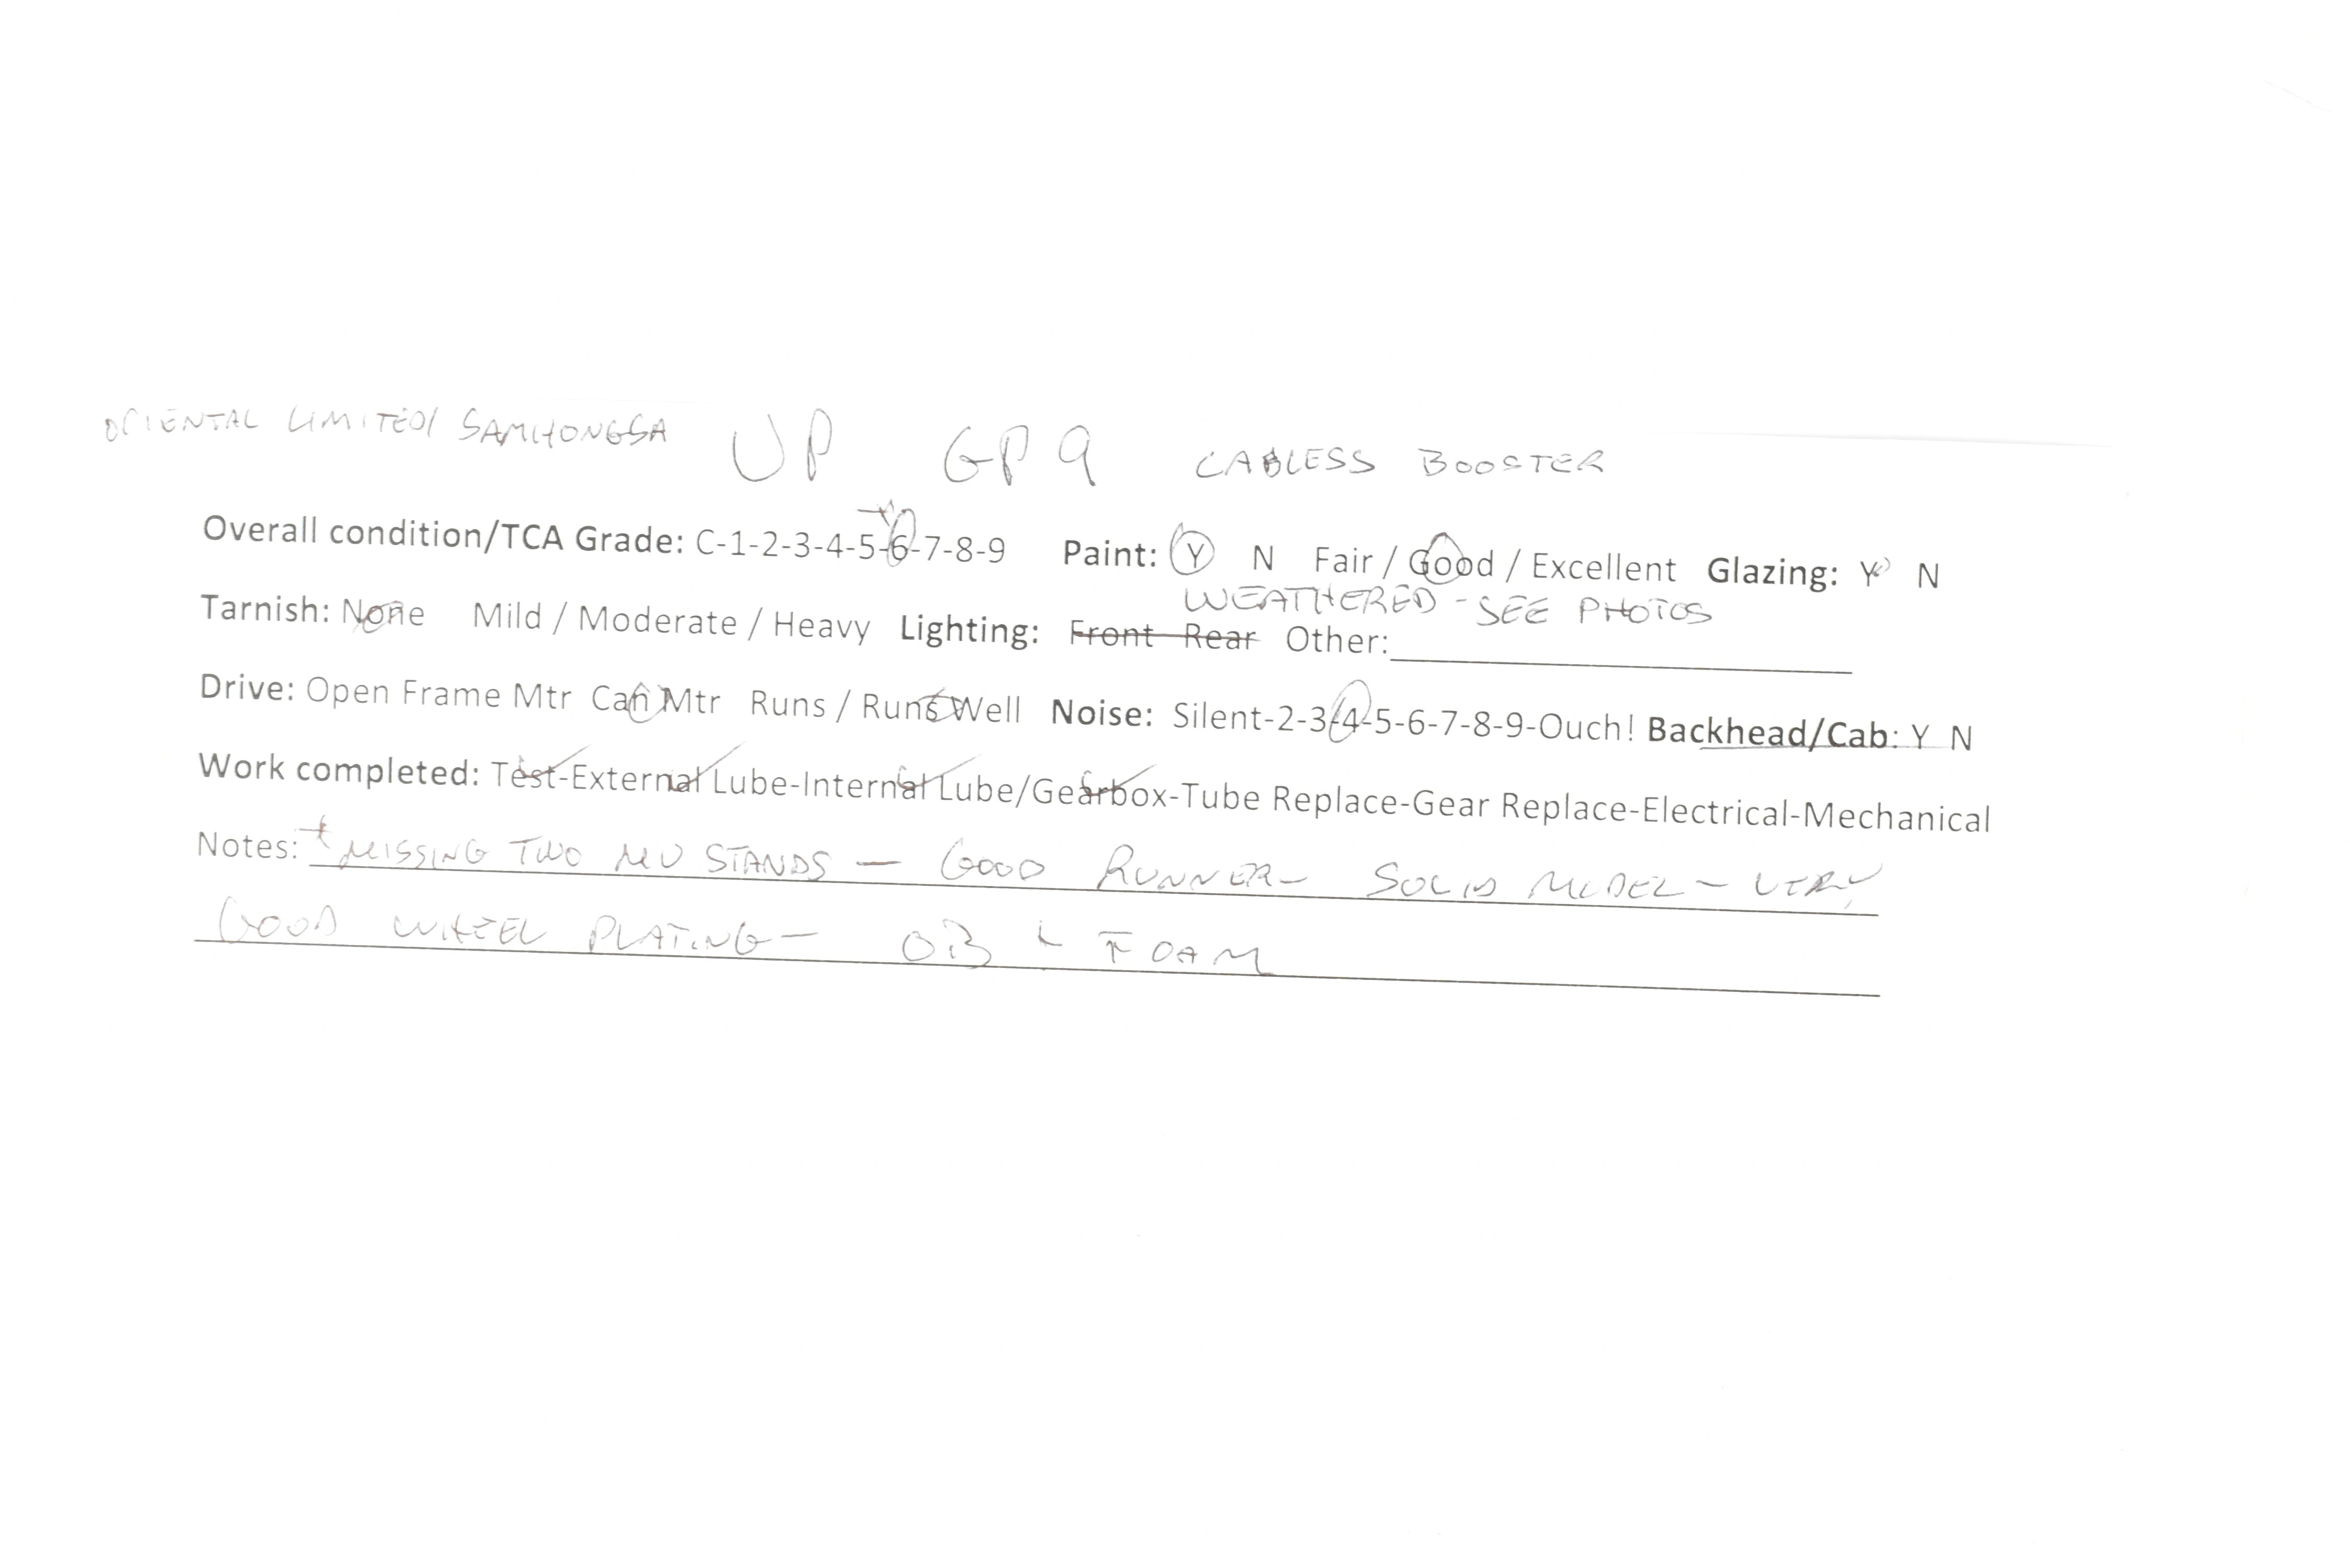 ORIENTAL LIMITED/ SAMHONGSA UP GP9 CABLESS BOOSTER
Overall condition/TCA Grade: C-1-2-3-4-5-6-7-8-9 Paint: Y N Fair / Good / Excellent Glazing: Y N
WEATHERED - SEE PHOTOS
Tarnish: None Mild / Moderate / Heavy Lighting: Front Rear Other:
Drive: Open Frame Mtr Can Mtr Runs / Runs Well Noise: Silent-2-3-4-5-6-7-8-9-Ouch! Backhead/Cab: Y N
Work completed: Test-External Lube-Internal Lube/Gearbox-Tube Replace-Gear Replace-Electrical-Mechanical
Notes: * MISSING TWO MU STANDS — GOOD RUNNER - SOLID MODEL - VERY
GOOD WHEEL PLATING - OB + FOAM